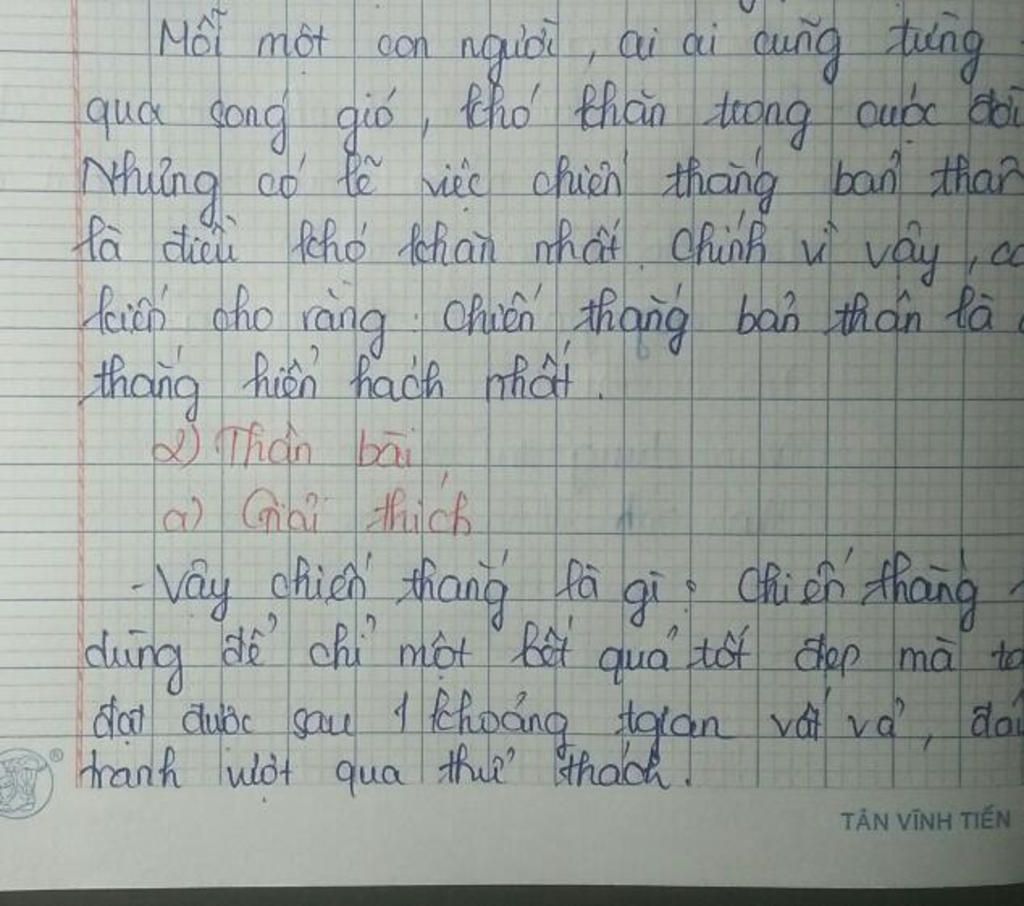 Mỗi một con người, ai ai cũng từng
qua sóng gió, khó khăn trong cuộc đời
Nhưng có lẽ việc chiến thắng bản thân
là điều khó khăn nhất. Chính vì vậy, có
kiến cho rằng: Chiến thắng bản thân là
thắng hiển hách nhất.
2) Thân bài
a) Giải thích
- Vậy chiến thắng là gì? Chiến thắng
dùng để chỉ một kết quả tốt đẹp mà ta
đạt được sau 1 khoảng tgian vất vả, đấu
tranh vượt qua thử thách.
®
TÂN VĨNH TIẾN